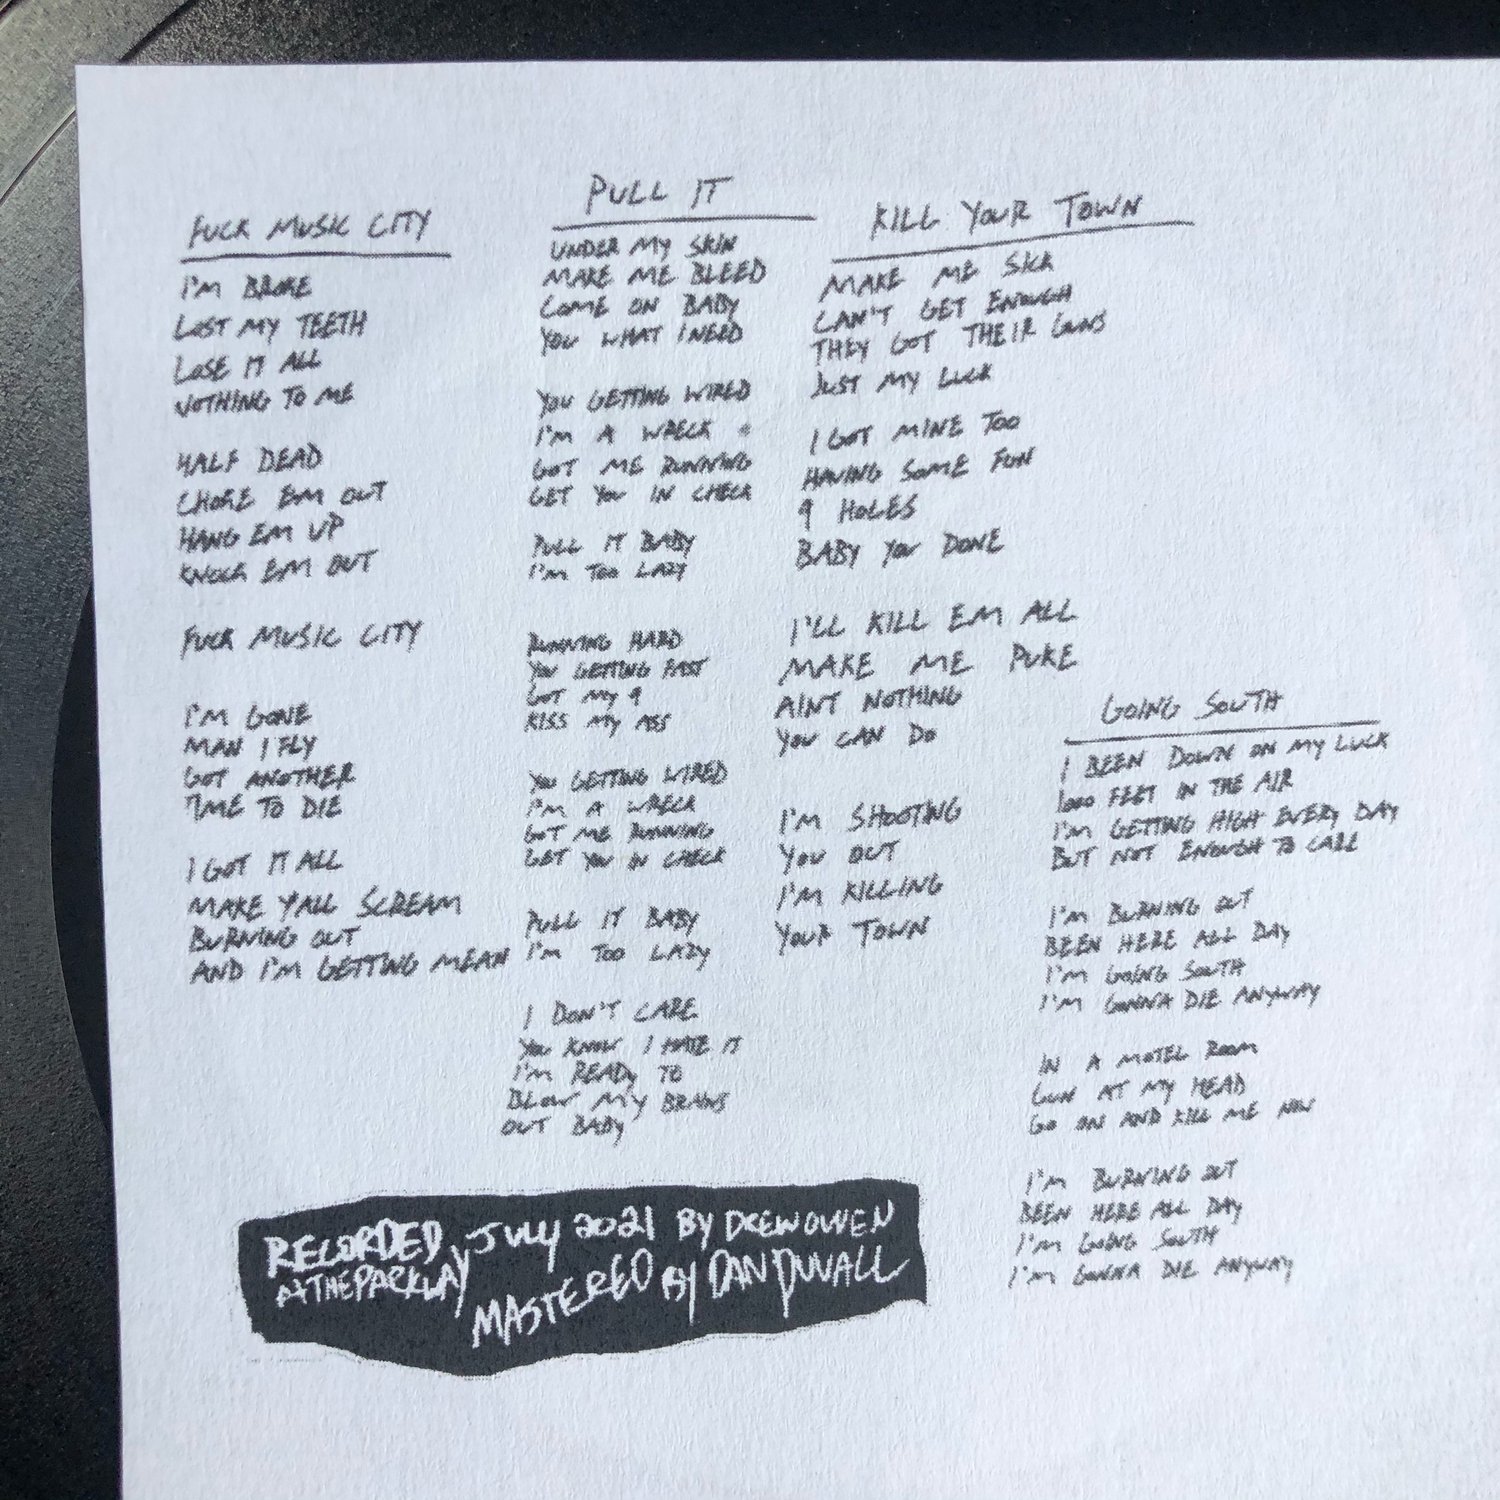 FUCK MUSIC CITY
I'M BROKE
LOST MY TEETH
LOSE IT ALL
NOTHING TO ME
HALF DEAD
CHOKE EM OUT
HANG EM UP
KNOCK EM OUT
FUCK MUSIC CITY
I'M GONE
MAN I FLY
GOT ANOTHER
TIME TO DIE
I GOT IT ALL
MAKE YALL SCREAM
BURNING OUT
AND I'M GETTING MEAN
PULL IT
UNDER MY SKIN
MAKE ME BLEED
COME ON BABY
YOU WHAT I NEED
YOU GETTING WIRED
I'M A WRECK
GOT ME RUNNING
GET YOU IN CHECK
PULL IT BABY
I'M TOO LAZY
RUNNING HARD
YOU GETTING FAST
GOT MY 9
KISS MY ASS
YOU GETTING WIRED
I'M A WRECK
GOT ME RUNNING
GET YOU IN CHECK
PULL IT BABY
I'M TOO LAZY
I DON'T CARE
YOU KNOW I HATE IT
I'M READY TO
BLOW MY BRAINS
OUT BABY
KILL YOUR TOWN
MAKE ME SICK
CAN'T GET ENOUGH
THEY GOT THEIR GUNS
JUST MY LUCK
I GOT MINE TOO
HAVING SOME FUN
9 HOLES
BABY YOU DONE
I'LL KILL EM ALL
MAKE ME PUKE
AINT NOTHING
YOU CAN DO
I'M SHOOTING
YOU OUT
I'M KILLING
YOUR TOWN
GOING SOUTH
I BEEN DOWN ON MY LUCK
1000 FEET IN THE AIR
I'M GETTING HIGH EVERY DAY
BUT NOT ENOUGH TO CARE
I'M BURNING OUT
BEEN HERE ALL DAY
I'M GOING SOUTH
I'M GONNA DIE ANYWAY
IN A MOTEL ROOM
GUN AT MY HEAD
GO ON AND KILL ME NOW
I'M BURNING OUT
BEEN HERE ALL DAY
I'M GOING SOUTH
I'M GONNA DIE ANYWAY
RECORDED JULY 2021 BY DREW OWEN
AT THE PARKWAY
MASTERED BY DAN DUVALL